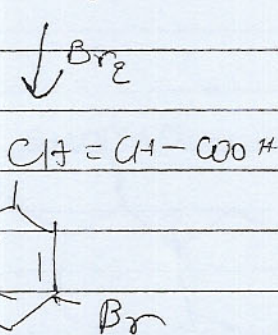 Br2
CH = CH - COOH
Br